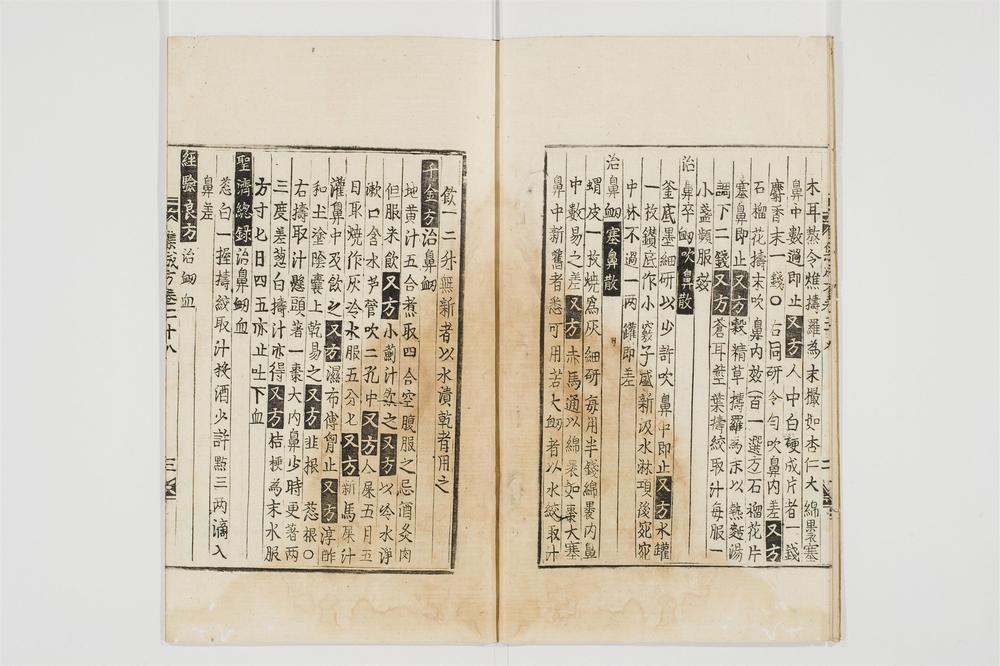 木耳蒸令燋擣羅為末撮如杏仁大綿裹塞
鼻中數過即止又方人中白硬成片者一錢
麝香末一錢〇右同研令勻吹鼻內差又方
石榴花擣末吹鼻內效百一選方石榴花片
塞鼻即止又方穀精草擣羅為末以熱麵湯
調下二錢又方蒼耳莖葉擣絞取汁每服一
小盞頻服妙
治鼻卒衄吹鼻散
釜底墨細研以少許吹鼻中即止又方水罐
一枚鑽底作小竅子盛新汲水淋項後宛宛
中林不過一兩罐即差
治鼻衄塞鼻散
蝟皮一枚燒為灰細研每用半錢綿裹內鼻
中數易之差又方赤馬通以綿裹如棗大塞
鼻中新舊者悉可用若大衄者以水絞取汁
飲一二升無新者以水漬乾者用之
千金方治鼻衄
地黃汁五合煮取四合空腹服之忌酒炙肉
但服米飲又方小薊汁飲之又方以冷水淨
漱口含水芦管吹二孔中又方人屎五月五
日取燒作灰冷水服五分匕又方新馬屎汁
灌鼻中及飲之又方濕布傅胷止又方淳酢
和土塗陰囊上乾易之又方韭根 葱根〇
右擣取汁懸頭著一棗大內鼻少時更著兩
三度差葱白擣汁亦得又方桔梗為末水服
方寸匕日四五亦止吐下血
聖濟總録治鼻衄血
葱白一握擣絞取汁投酒少許點三兩滴入
鼻差
經驗良方治衄血